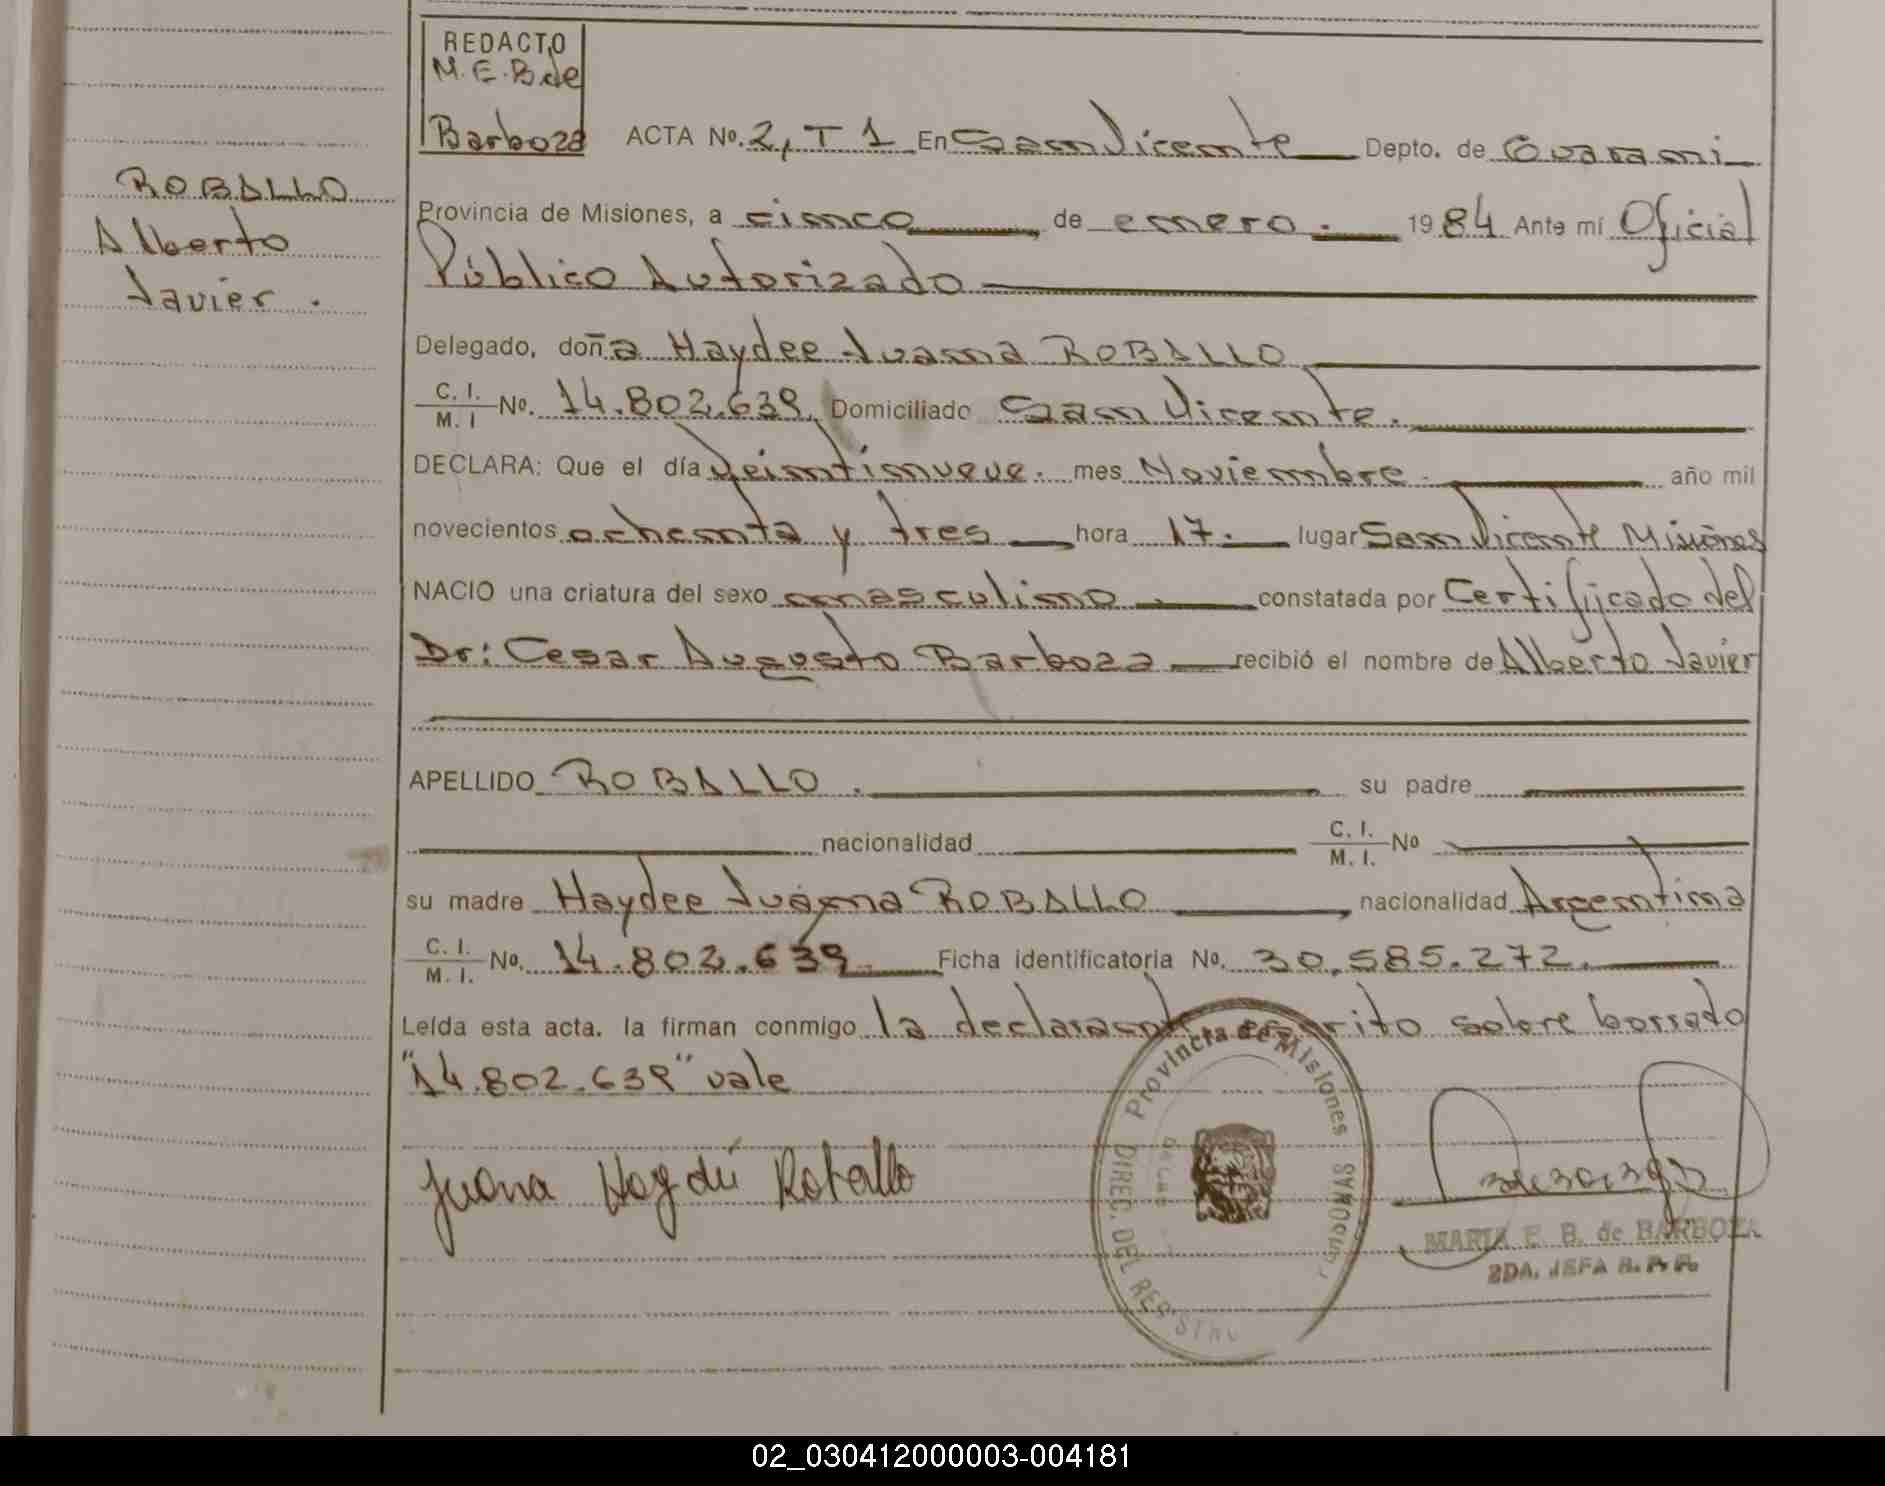 REDACTO
M.E.B de
Barboza
ACTA Nº. 2, T 1 En San Vicente Depto. de Guarani
ROBALLO
Alberto
Javier.
Provincia de Misiones, a cinco de enero. 1984 Ante mí Oficial
Público Autorizado
Delegado, doña Haydee Juana ROBALLO
C. I. / M. I Nº. 14.802.639. Domiciliado San Vicente.
DECLARA: Que el día Veintinueve. mes Noviembre. año mil
novecientos ochenta y tres hora 17. lugar San Vicente Misiones
NACIO una criatura del sexo masculino constatada por Certificado del
Dr: Cesar Augusto Barboza recibió el nombre de Alberto Javier
APELLIDO ROBALLO. su padre
nacionalidad C. I. / M. I. Nº
su madre Haydee Juana ROBALLO nacionalidad Argentina
C. I. / M. I. Nº. 14.802.639. Ficha identificatoria Nº. 30.585.272.
Leída esta acta. la firman conmigo la declarante escrito sobre borrado
"14.802.639" vale
Provincia de Misiones
DIREC. DEL REGISTRO
Juana Haydeé Roballo
MARIA E. B. de BARBOZA
2DA. JEFA R. P. P.
02_030412000003-004181